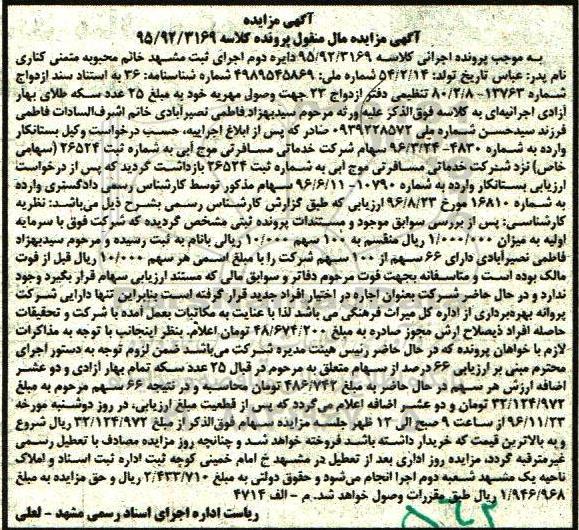 آگهی مزایده
آگهی مزایده مال منقول پرونده کلاسه ۹۵/۹۲/۳۱۶۹
به موجب پرونده اجرائی کلاسه ۹۵/۹۲/۳۱۶۹ دایره دوم اجرای ثبت مشهد خانم محبوبه متمنی کناری
نام پدر: عباس تاریخ تولد: ۵۴/۲/۱۴ شماره ملی: ۴۹۸۹۵۴۵۸۶۹ شماره شناسنامه: ۳۶ به استناد سند ازدواج
شماره ۱۳۷۶۳- ۸۰/۲/۸ تنظیمی دفتر ازدواج ۲۳ جهت وصول مهریه خود به مبلغ ۲۵ عدد سکه طلای بهار
آزادی اجرائیه‌ای به کلاسه فوق‌الذکر علیه ورثه مرحوم سیدبهزاد فاطمی نصیرآبادی خانم اشرف‌السادات فاطمی
فرزند سیدحسن شماره ملی ۰۹۳۹۲۲۸۵۷۲ صادر که پس از ابلاغ اجراییه، حسب درخواست وکیل بستانکار
وارده به شماره ۴۸۳۰- ۹۶/۳/۲۴ سهام شرکت خدماتی مسافرتی موج آبی به شماره ثبت ۲۶۵۲۴ (سهامی
خاص) نزد شرکت خدماتی مسافرتی موج آبی به شماره ثبت ۲۶۵۲۴ بازداشت گردید که پس از درخواست
ارزیابی بستانکار وارده به شماره ۱۰۷۹۰- ۹۶/۶/۱۱ سهام مذکور توسط کارشناس رسمی دادگستری وارده
به شماره ۱۶۸۱۰ مورخ ۹۶/۸/۲۳ ارزیابی که طبق گزارش کارشناس رسمی بشرح ذیل می‌باشد: نظریه
کارشناسی: پس از بررسی سوابق موجود و مستندات پرونده ثبتی مشخص گردیده که شرکت فوق با سرمایه
اولیه به میزان ۱/۰۰۰/۰۰۰ ریال منقسم به ۱۰۰ سهم ۱۰/۰۰۰ ریالی بانام به ثبت رسیده و مرحوم سیدبهزاد
فاطمی نصیرآبادی دارای ۶۶ سهم از ۱۰۰ سهم شرکت را با مبلغ اسمی هر سهم ۱۰/۰۰۰ ریال قبل از فوت
مالک بوده است و متاسفانه بجهت فوت مرحوم دفاتر و سوابق مالی که مستند ارزیابی سهام قرار بگیرد وجود
ندارد و در حال حاضر شرکت بعنوان اجاره در اختیار افراد جدید قرار گرفته است بنابراین تنها دارایی شرکت
پروانه بهره‌برداری از اداره کل میراث فرهنگی می باشد لذا با عنایت به مکاتبات بعمل آمده با شرکت و تحقیقات
حاصله افراد ذیصلاح ارش مجوز صادره به مبلغ ۴۸/۶۷۴/۲۰۰ تومان اعلام. بنظر اینجانب با توجه به مذاکرات
لازم با خواهان پرونده که در حال حاضر رئیس هیئت مدیره شرکت می‌باشد ضمن لزوم توجه به دستور اجرای
محترم مبنی بر ارزیابی ۶۶ درصد از سهام متعلق به مرحوم در قبال ۲۵ عدد سکه تمام بهار آزادی و دو عشر
اضافه ارزش هر سهم در حال حاضر به مبلغ ۴۸۶/۷۴۲ تومان محاسبه و در نتیجه ۶۶ سهم مرحوم به مبلغ
۳۲/۱۲۴/۹۷۲ تومان و دو عشر اضافه اعلام می‌گردد که پس از قطعیت مبلغ ارزیابی، در روز دوشنبه مورخه
۹۶/۱۱/۲۳ از ساعت ۹ صبح الی ۱۲ ظهر جلسه مزایده سهام فوق‌الذکر از مبلغ ۳۲/۱۲۴/۹۷۲ ریال شروع
و به بالاترین قیمت که خریدار داشته باشد فروخته خواهد شد و چنانچه روز مزایده مصادف با تعطیل رسمی
غیرمترقبه گردد، مزایده روز اداری بعد از تعطیل در مشهدج امام خمینی کوچه ثبت اداره ثبت اسناد و املاک
ناحیه یک مشهد شعبه دوم اجرا انجام می‌شود و حقوق دولتی به مبلغ ۲/۴۳۳/۷۱۰ ریال و حق مزایده به مبلغ
۱/۹۴۶/۹۶۸ ریال طبق مقررات وصول خواهد شد. م - الف ۴۷۱۴
ریاست اداره اجرای اسناد رسمی مشهد - لعلی